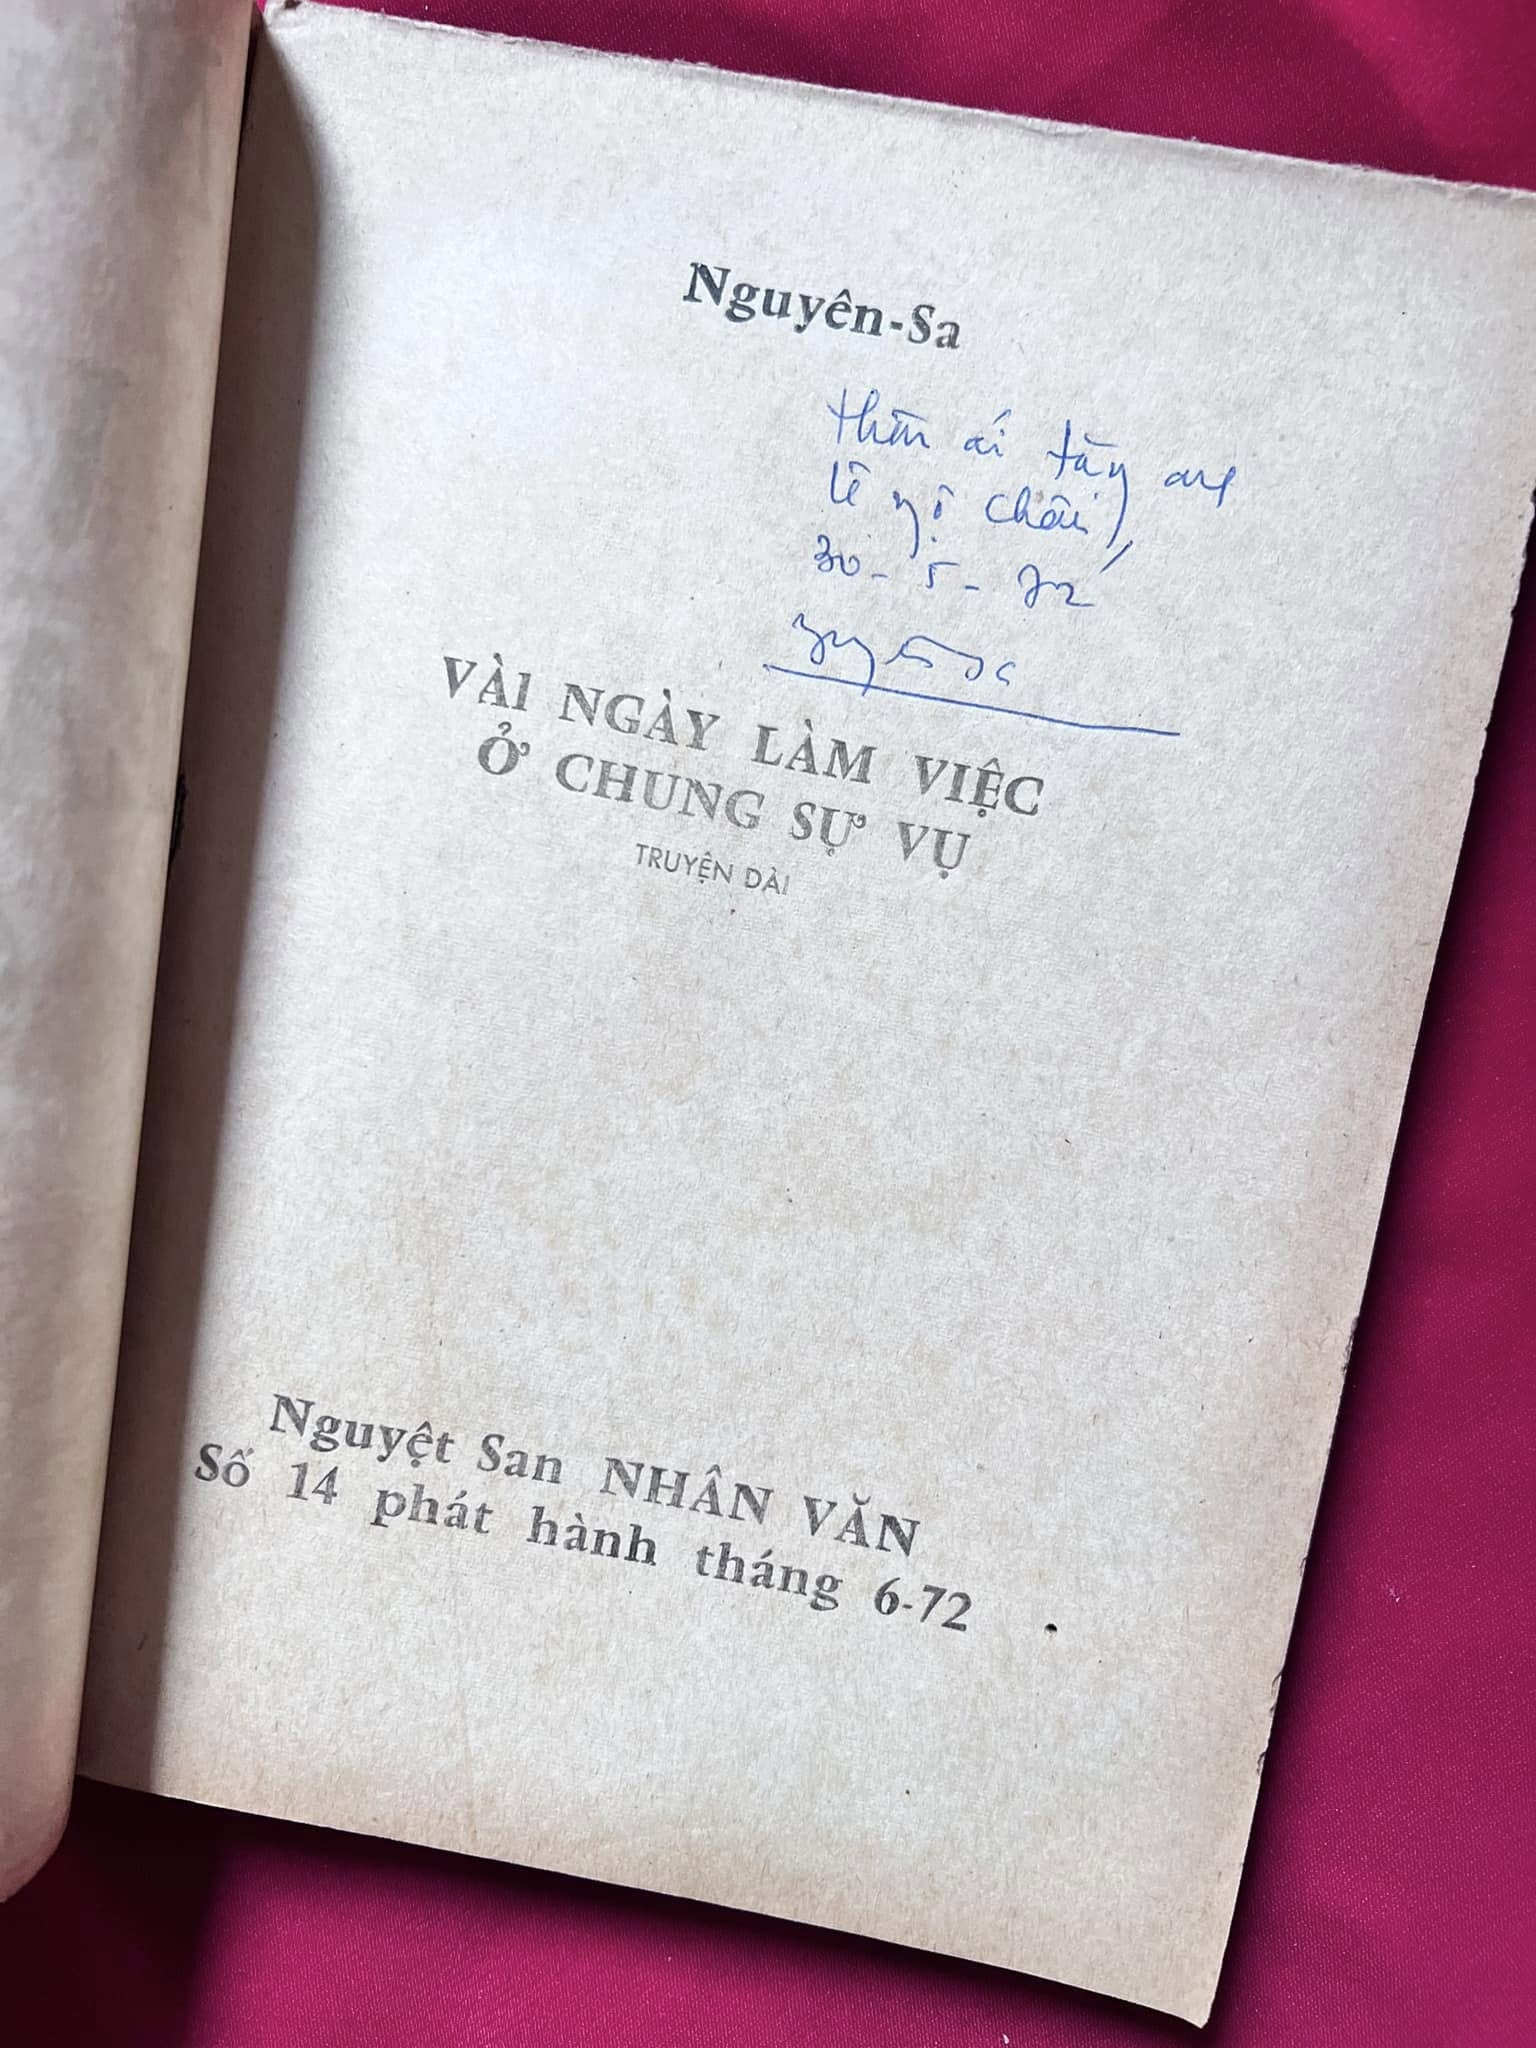 Nguyên-Sa
thân ái tặng anh
lê ngộ châu
30-5-72
nguyên sa
VÀI NGÀY LÀM VIỆC
Ở CHUNG SỰ VỤ
TRUYỆN DÀI
Nguyệt San NHÂN VĂN
Số 14 phát hành tháng 6-72